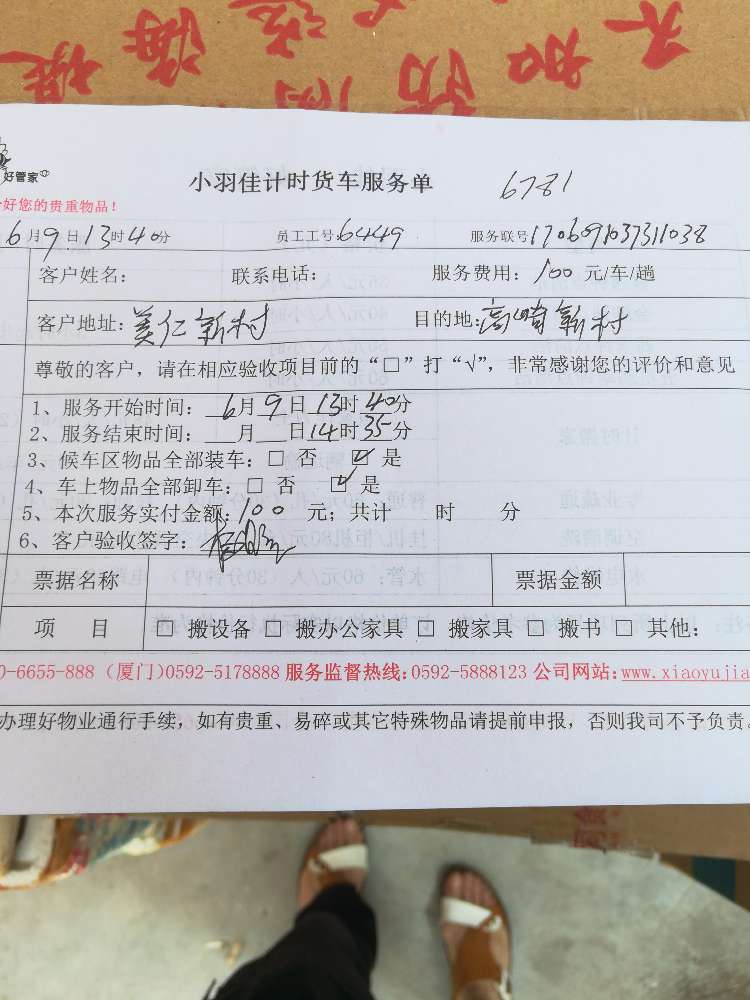 好管家
小羽佳计时货车服务单
6781
好您的贵重物品！
6月9日13时40分 员工工号6449 服务联号1706091037311038
客户姓名： 联系电话： 服务费用：100元/车/趟
客户地址：美仁新村 目的地：高崎新村
尊敬的客户，请在相应验收项目前的“□”打“√”，非常感谢您的评价和意见
1、服务开始时间：6月9日13时40分
2、服务结束时间：___月___日14时35分
3、候车区物品全部装车：□ 否 ☑ 是
4、车上物品全部卸车：□ 否 ☑ 是
5、本次服务实付金额：100 元；共计 时 分
6、客户验收签字：
票据名称 票据金额
项 目 □ 搬设备 □ 搬办公家具 □ 搬家具 □ 搬书 □ 其他：
0-6655-888（厦门)0592-5178888 服务监督热线:0592-5888123 公司网站:www.xiaoyujia
办理好物业通行手续，如有贵重、易碎或其它特殊物品请提前申报，否则我司不予负责。